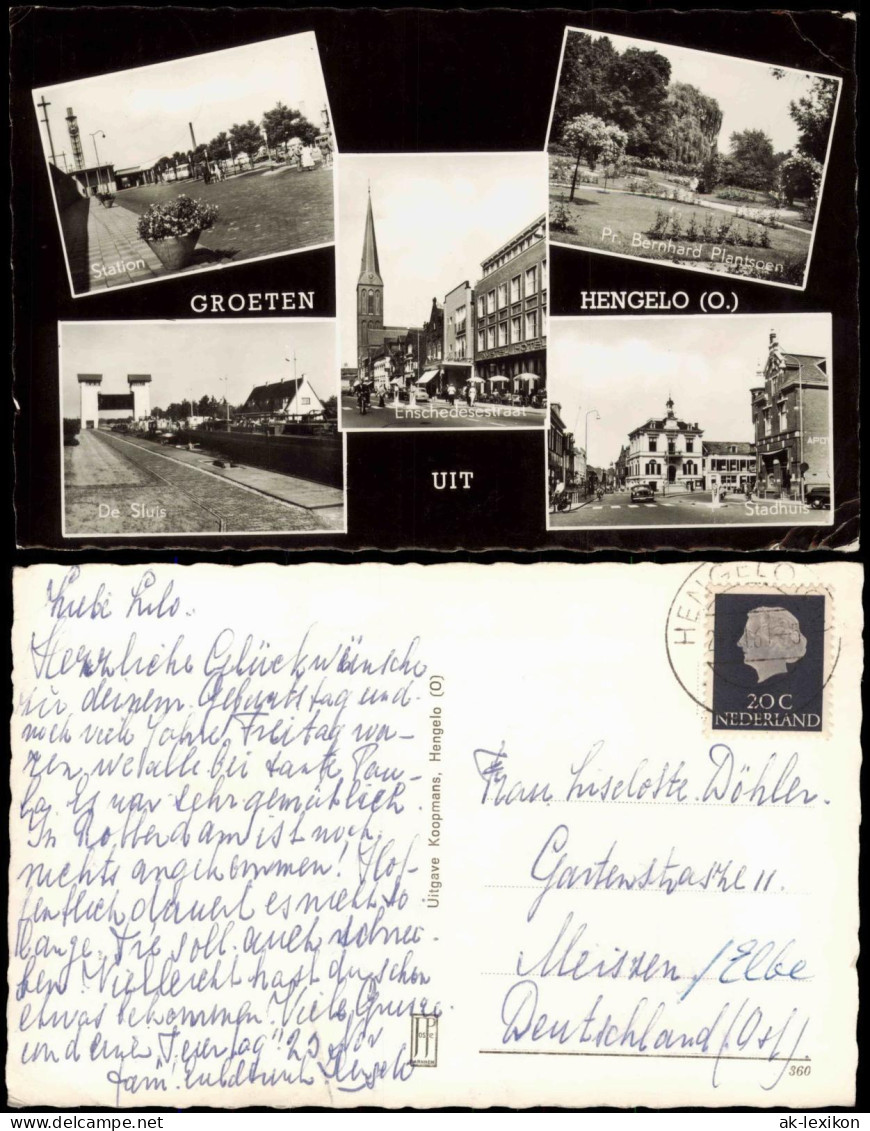 Station
Pr. Bernhard Plantsoen
GROETEN
HENGELO (O.)
Enschedesestraat
De Sluis
UIT
APO
Stadhuis
Liebe Lilo.
Herzliche Glückwünsche
zu deinem Geburtstag und
noch viele Jahre Freitag wa-
ren wir alle bei tante Pau-
la. es war sehr gemütlich.
In Rotterdam ist noch
nichts angekommen! Hof-
fentlich dauert es nicht so
lange. Sie soll auch schrei-
ben. Vielleicht hast du schon
etwas bekommen. Viele Grüsse
und einen Feiertag" 23 Nov
fam. Hengelo
Uitgave Koopmans, Hengelo (O)
HENGELO
20 C
NEDERLAND
Frau Liselotte Döhler.
Gartenstraszе 11.
Meiszen /Elbe
Deutschland (Ost)
JP
360
ak-lexikon